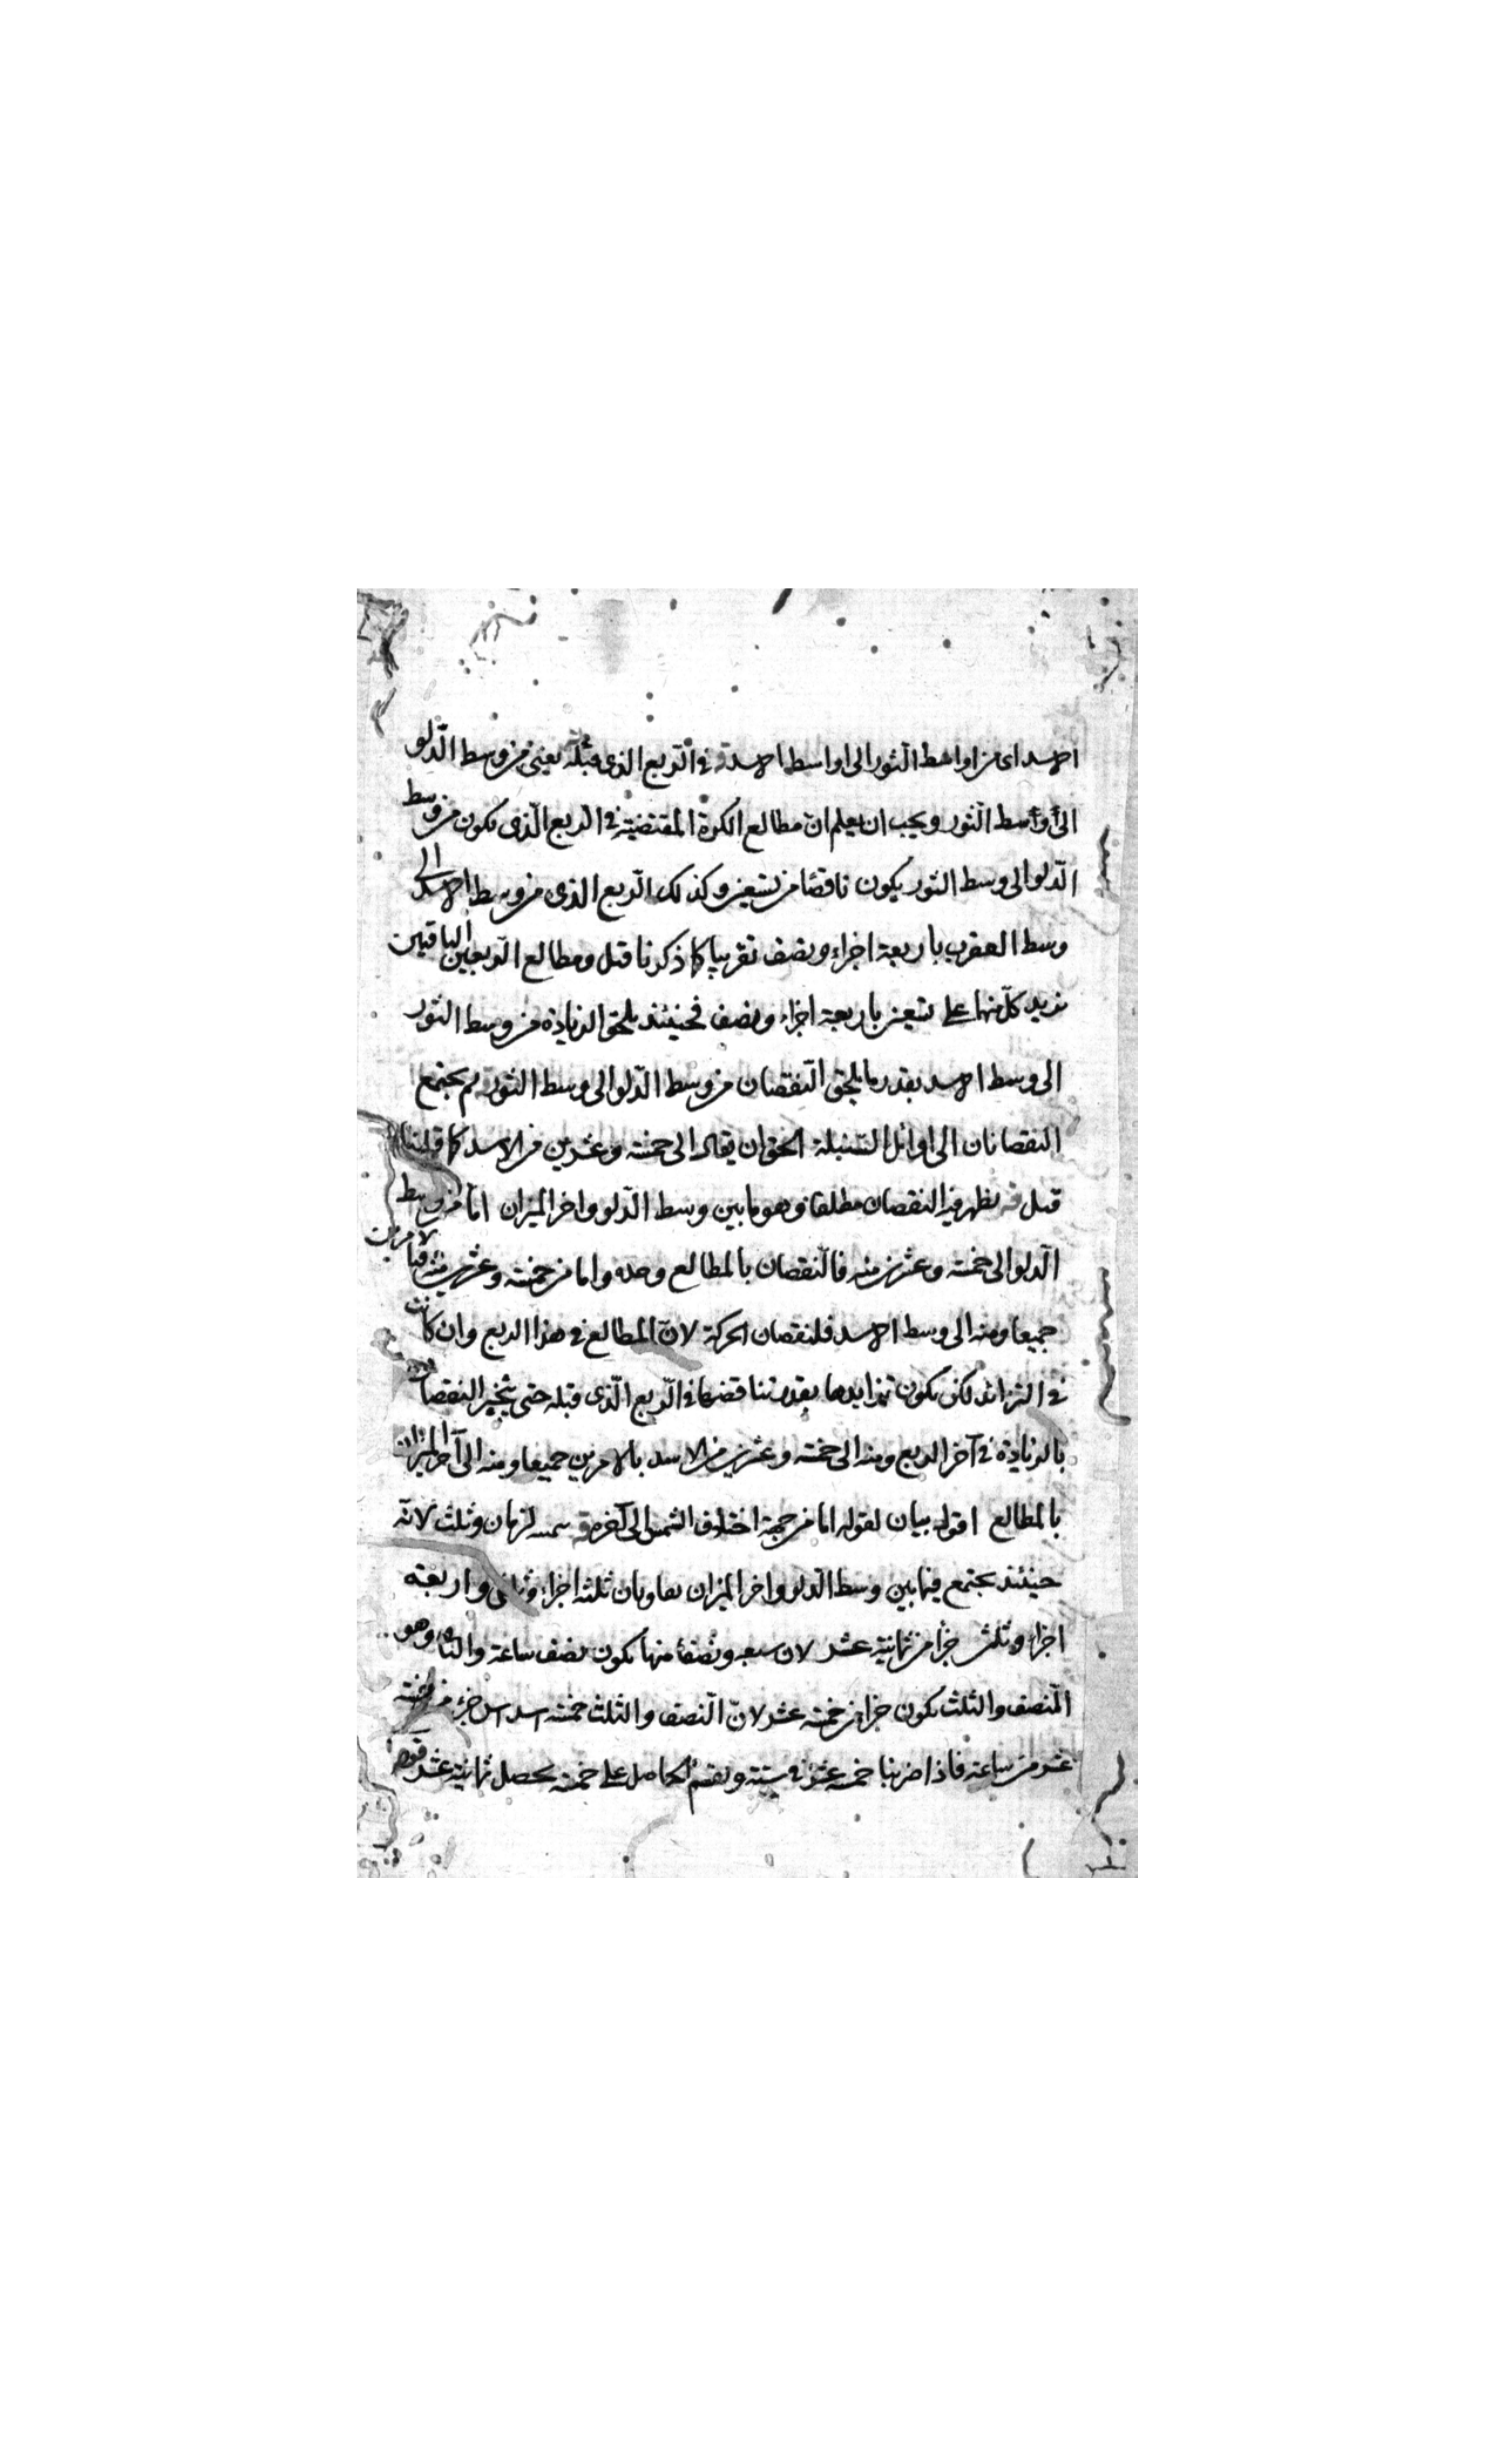 الاسد اى من اواسط الثور الى اواسط الاسد قه فى الربع الذى قبله يعنى من وسط الدلو
الى أواسط الثور ويجب ان يعلم ان مطالع الكرة المقتضية فى الربع الذى يكون من وسط
الدلو الى وسط الثور يكون ناقصا من تسعين وكذلك الربع الذى من وسط الاسد الى
وسط العقرب باربعة اجزاء ونصف تقريبا كما ذكرنا قبل ومطالع الربعين الباقيين
يزيد كل منهما على تسعين باربعة اجزاء ونصف فحينئذ يلحق الزيادة من وسط الثور
الى وسط الاسد بقدر ما يلحق النقصان من وسط الدلو الى وسط الثور ثم يجتمع
النقصانان الى اوائل السنبلة الحق ان يقال الى خمسة وعشرين من الاسد كما قلنا
قبل قه يظهر فيه النقصان مطلقا وهو ما بين وسط الدلو واخر الميزان اما من وسط
الدلو الى خمسة وعشرين منه فالنقصان بالمطالع وحده واما من خمسة وعشرين منه فبالامرين
جميعا ومنه الى وسط الاسد فلنقصان الحركة لان المطالع فى هذا الربع وان كانت
فى التزائد لكن يكون تزايدها بقدر تناقضها فى الربع الذى قبله حتى ينجبر النقصان
بالزيادة فى آخر الربع ومنه الى خمسة وعشرين من الاسد بالامرين جميعا ومنه الى آخر الميزان
بالمطالع اقول بيان لقوله اما من جهة اختلاف الشمس الى آخره قه لزمان وثلث لانه
حينئذ يجتمع فيما بين وسط الدلو واخر الميزان تفاوتان ثلثه اجزاء وثلثى واربعة
اجزاء وثلث جزأ من ثمانية عشر لان سبعه ونصفا منها يكون نصف ساعة والباقى وهو
النصف والثلث يكون جزأ من خمسة عشر لان النصف والثلث خمسة اسداس جزء من خمسة
عشر من ساعة فاذا ضربنا خمسة عشر فى ستة ونقسم الحاصل على خمسة يحصل ثمانية عشر